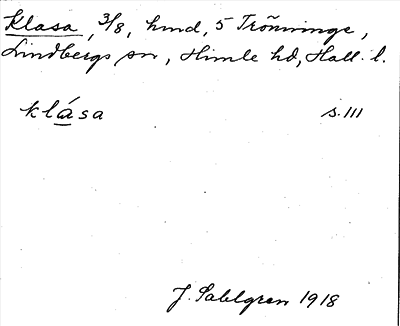 Klasa, 3/8, hmd, 5 Trönninge,
Lindbergs sn, Himle hd, Hall. l.
klása s. 111
J. Sahlgren 1918